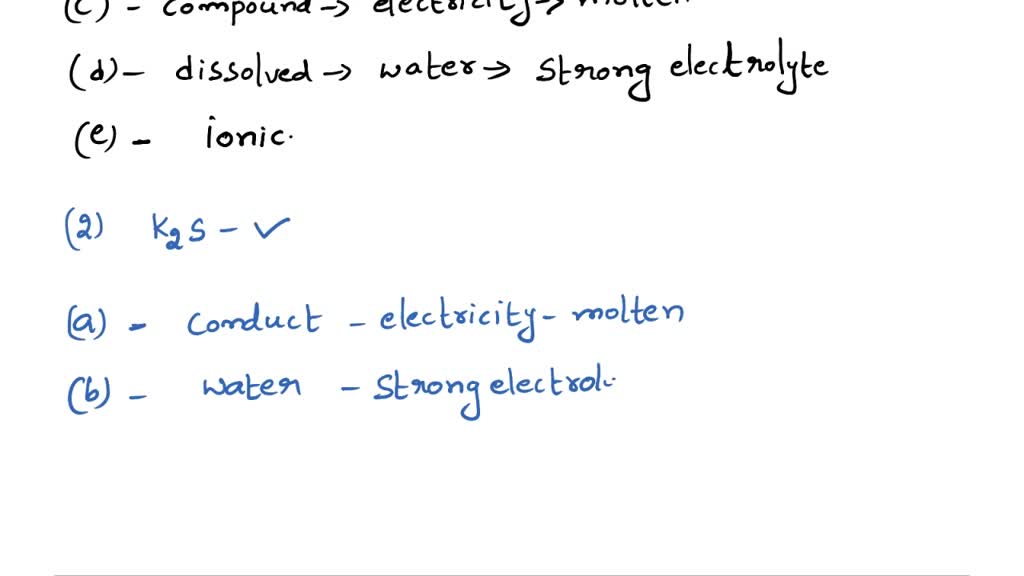 (c) - compound → electricity → molten
(d) - dissolved → water → strong electrolyte
(e) - ionic.
(2) K2S - ✓
(a) - conduct - electricity - molten
(b) - water - strong electrol